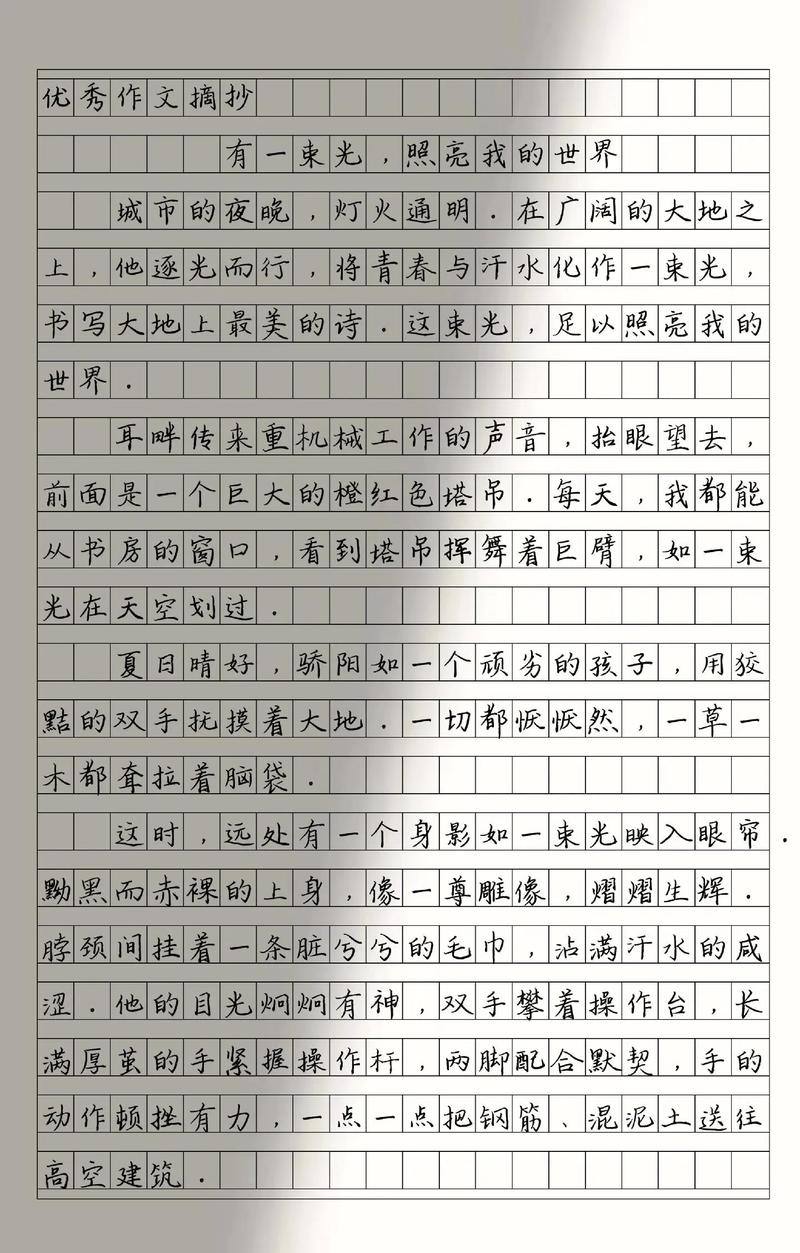 优秀作文摘抄
有一束光，照亮我的世界
城市的夜晚，灯火通明．在广阔的大地之
上，他逐光而行，将青春与汗水化作一束光，
书写大地上最美的诗．这束光，足以照亮我的
世界．
耳畔传来重机械工作的声音，抬眼望去，
前面是一个巨大的橙红色塔吊．每天，我都能
从书房的窗口，看到塔吊挥舞着巨臂，如一束
光在天空划过．
夏日晴好，骄阳如一个顽劣的孩子，用狡
黠的双手抚摸着大地．一切都恹恹然，一草一
木都耷拉着脑袋．
这时，远处有一个身影如一束光映入眼帘．
黝黑而赤裸的上身，像一尊雕像，熠熠生辉．
脖颈间挂着一条脏兮兮的毛巾，沾满汗水的咸
涩．他的目光炯炯有神，双手攀着操作台，长
满厚茧的手紧握操作杆，两脚配合默契，手的
动作顿挫有力，一点一点把钢筋、混泥土送往
高空建筑．